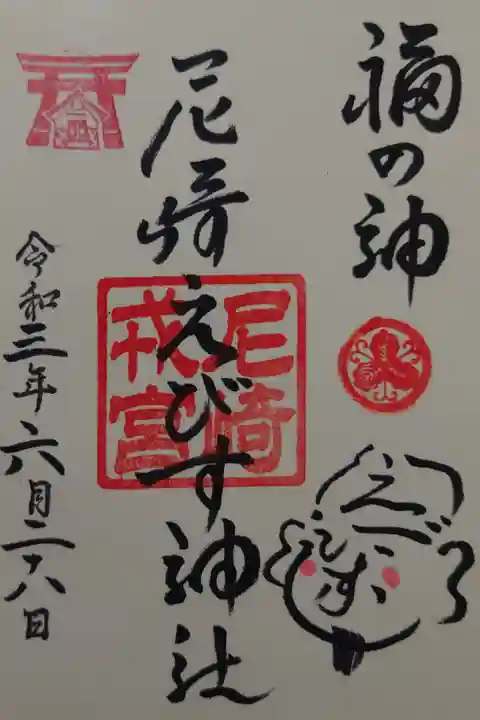 福の神
尼崎えびす神社
尼崎
戎宮
えびす
令和三年六月二十六日